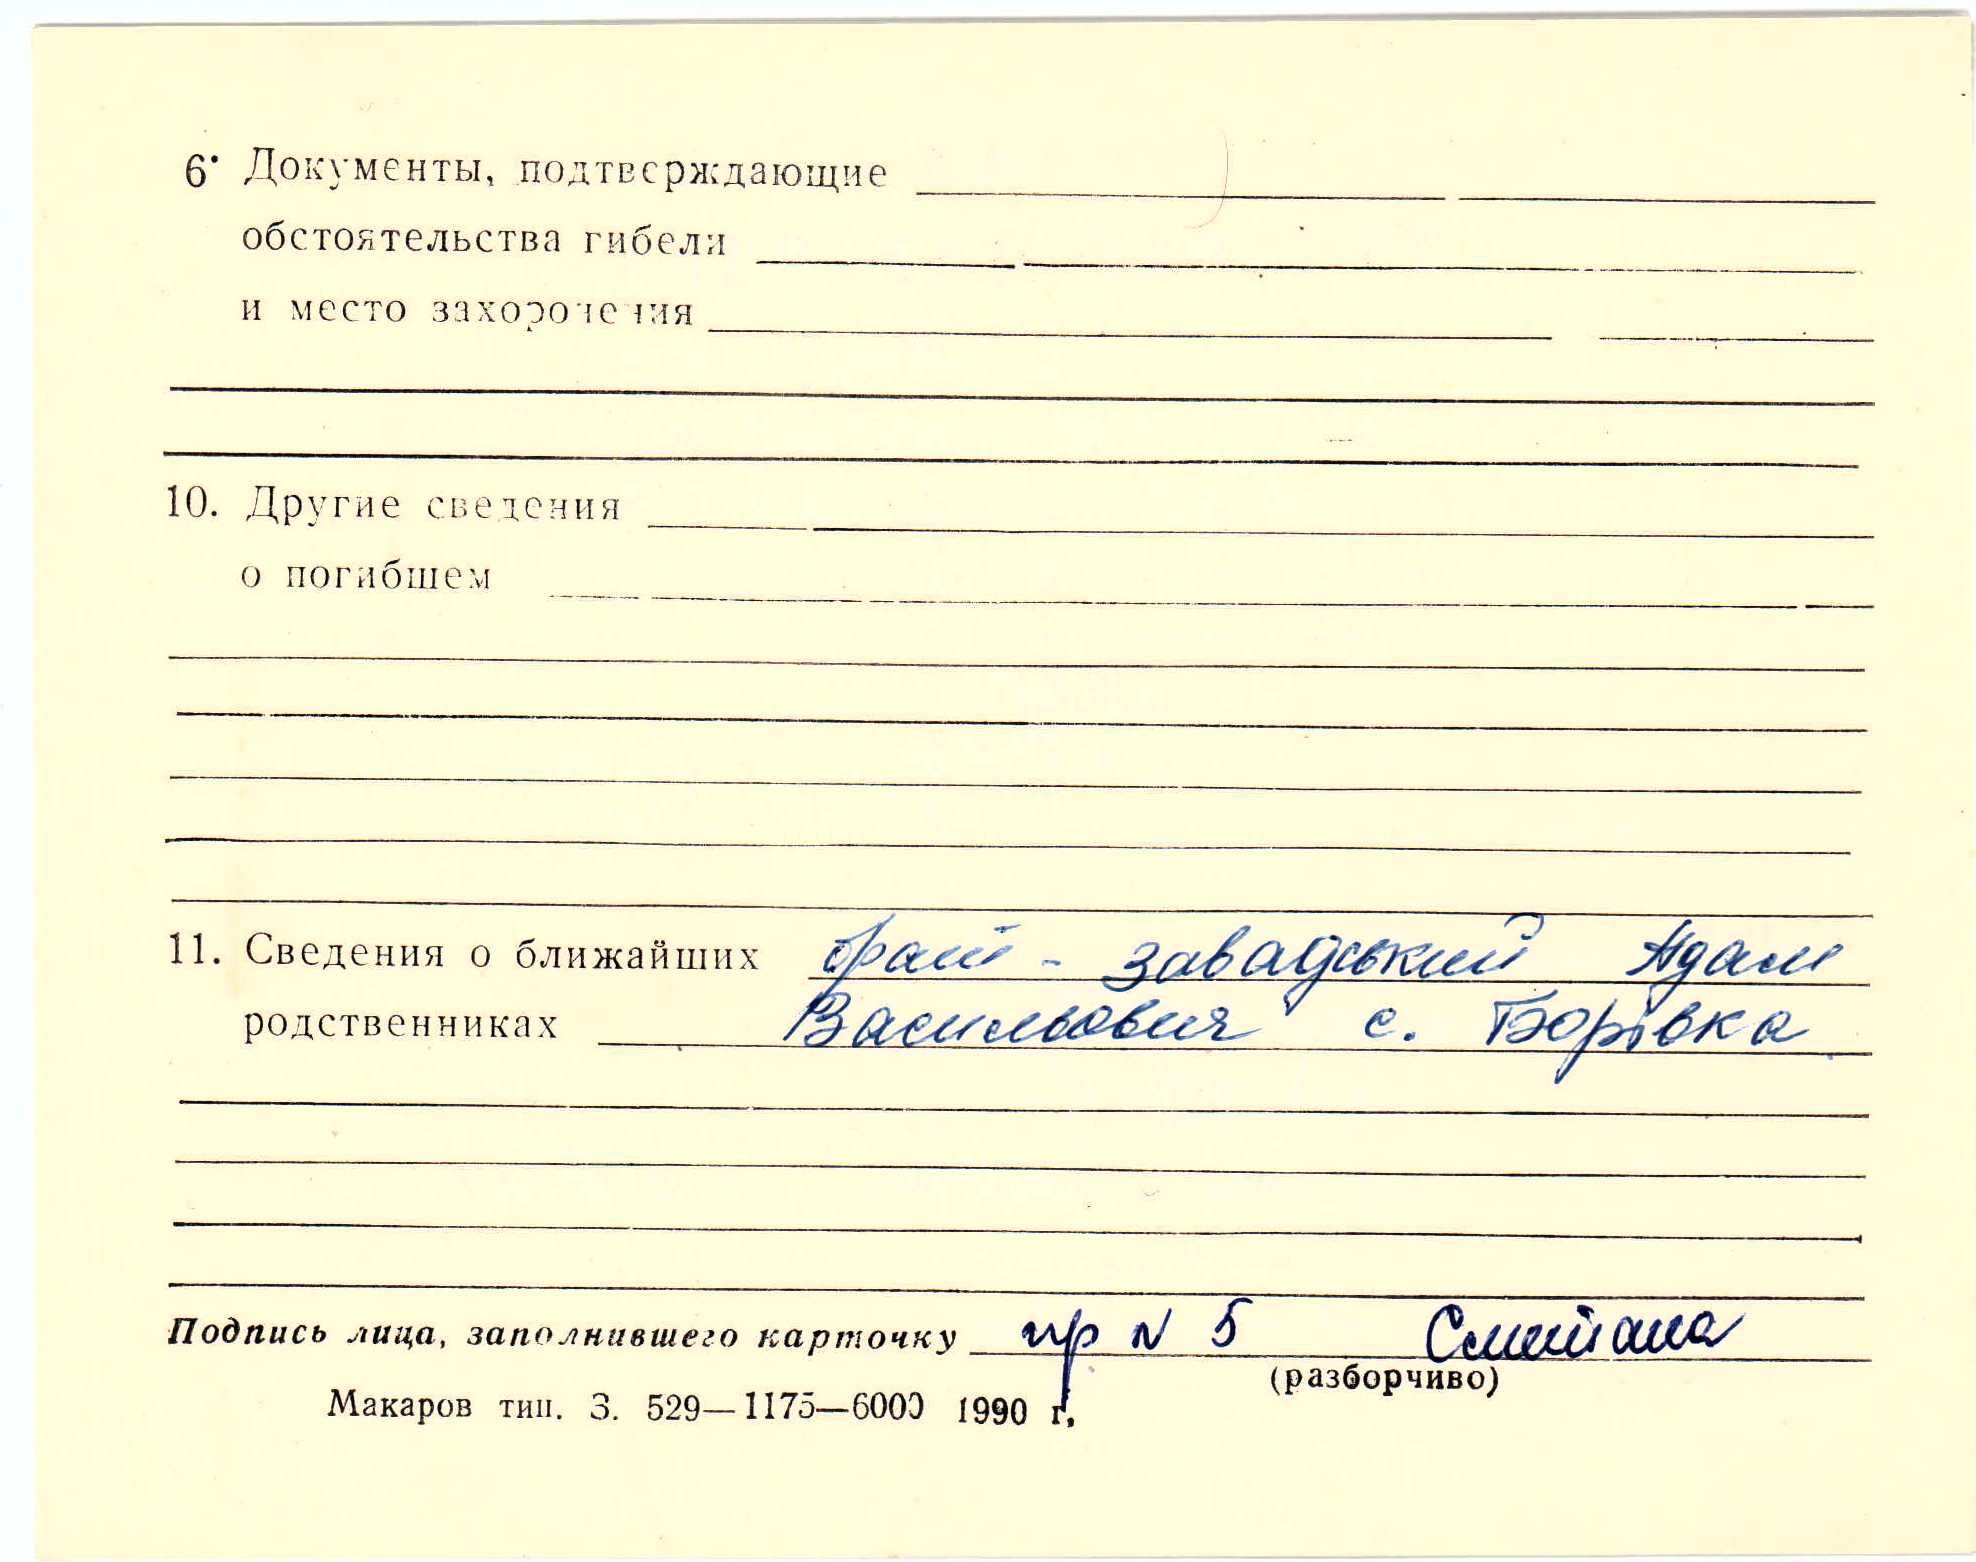 6. Документы, подтверждающие
обстоятельства гибели
и место захоронения
10. Другие сведения
о погибшем
11. Сведения о ближайших брат - Завадський Адам
родственниках Васильович с. Борівка
Подпись лица, заполнившего карточку пр N 5 Сметана
(разборчиво)
Макаров тип. З. 529—1175—6000 1990 г.